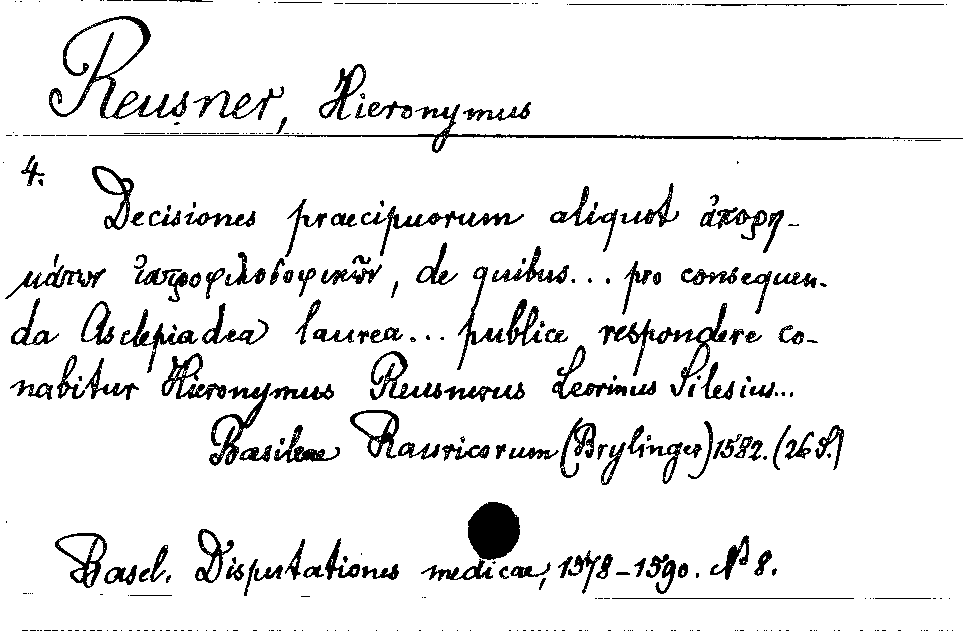 Reusner, Hieronymus
4.
Decisiones praecipuorum aliquot ἀπορη-
μάτων ἰατροφιλοσοφικῶν, de quibus... pro consequen-
da Asclepiadea laurea... publice respondere co-
nabitur Hieronymus Reusnerus Leorinus Silesius...
Basileae Rauricorum (Brylinger) 1582. (26 S.)
Basel. Disputationes medicae, 1578-1590. No 8.